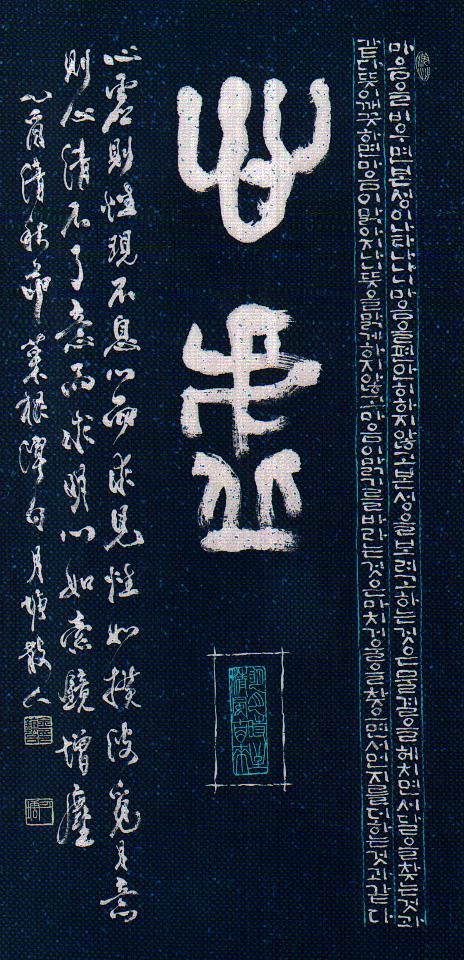 마음을비우면본성이나타나니마음을편안히하지않고본성을보려고하는것은물결을헤치면서달을찾는것과
같다뜻이깨끗하면마음이맑아지니뜻을맑게하지않고마음이맑기를바라는것은마치거울을찾으면서먼지를더하는것과같다
心虛
心虛則性現不息心而求見性如撥波覓月意
則心淸不了意而求明心如索鏡增塵
乙酉淸秋節菜根譚句月塘散人